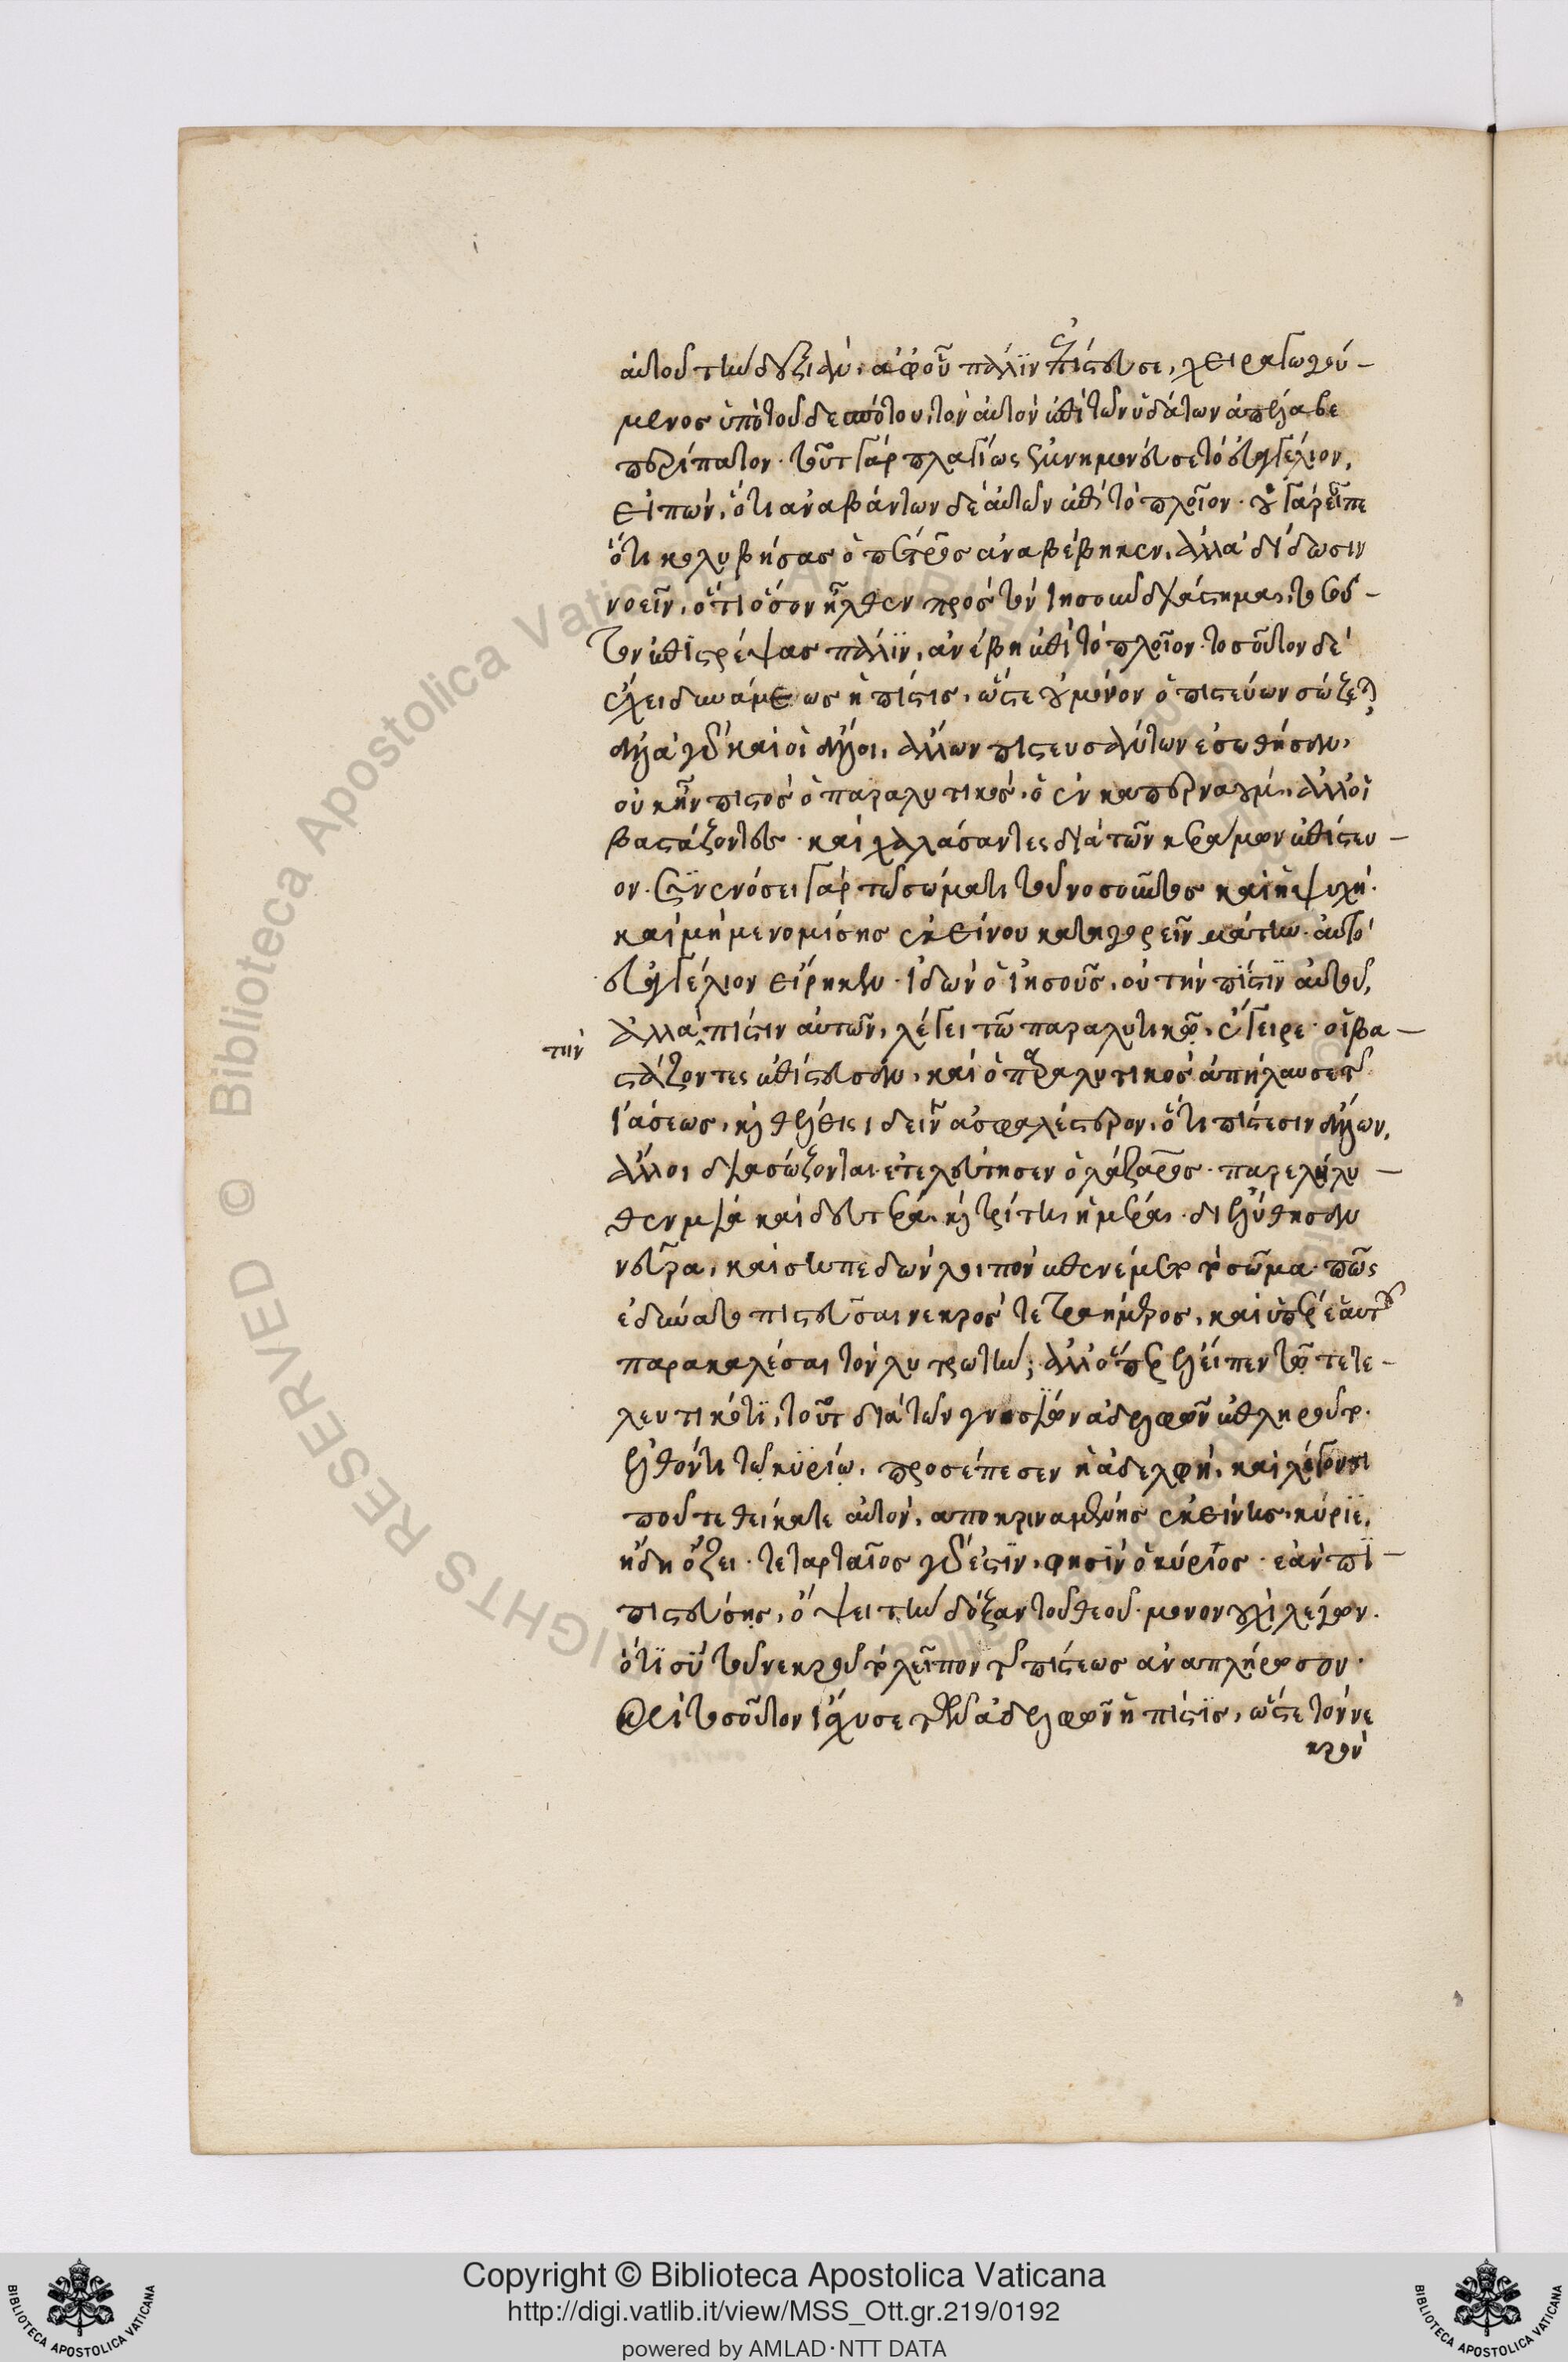 αὐτοῦ τὴν δεξιάν· ἀφοῦ πάλϊν ἐπίστευσε, χειραγωγού-
μενος ὑπὸ τοῦ δεσπότου, τὸν αὐτὸν ἐπὶ τῶν ὑδάτων ἀπέλαβε
περίπατον· τοῦτο γὰρ πλαγίως ἐμνημόνευσε τὸ εὐαγγέλιον,
εἰπὼν, ὅτι ἀναβάντων δὲ αὐτῶν ἐπὶ τὸ πλοῖον· οὐ γὰρ εἶπε
ὅτι κολυβήσας ὁ πέτρος ἀναβέβηκεν, ἀλλὰ δίδωσιν
νοεῖν, ὅτι ὅσον ἦλθεν πρὸς τὸν ἰησοῦν διάστημα, τοσοῦ-
τον ἐπϊστρέψας πάλϊν, ἀνέβη ἐπὶ τὸ πλοῖον· τοσοῦτον δὲ
ἔχει δυνάμεως ἡ πίστις, ὥστε οὐ μόνον ὁ πιστεύων σώζεται
ἀλλὰ γὰρ καὶ οἱ ἄλλοι, ἄλλων πιστευσάντων ἐσώθησαν,
οὐκ ἦν πιστὸς ὁ παραλυτικὸς, ὁ ἐν καπερναοὺμ, ἀλλ' οἱ
βαστάζοντες· καὶ χαλάσαντες διὰ τῶν κεράμων ἐπίστευ-
ον· συνενόσει γὰρ τῶ σώματι τοῦ νοσοῦντος καὶ ἡ ψυχή·
καὶ μή με νομίσης ἐκείνου κατηγορεῖν μάτην· αὐτὸ
εὐαγγέλιον εἴρηκεν· ἰδὼν ὁ ἰησοῦς, οὐ τὴν πίστϊν αὐτοῦ,
ἀλλὰ ‸πίστιν αὐτῶν, λέγει τῶ παραλυτικῷ, ἔγειρε· οἱ βα-
τὴν
στάζοντες ἐπίστευσαν, καὶ ὁ παραλυτικὸς ἀπήλαυσε τῆς
ἰάσεως, καὶ θέλεις ἰδεῖν ἀσφαλέστερον, ὅτι πίστεσιν ἄλλων,
ἄλλοι διασώζονται· ἐτελεύτησεν ὁ λάζαρος· παρελήλυ-
θεν μία καὶ δευτέρα, καὶ τρίτη ἡμέρα· διελύθησαν
νεῦρα, καὶ σηπεδὼν λοιπὸν ἐπενέμετο τὸ σῶμα· πῶς
ἐδύνατο πιστεῦσαι νεκρὸς τετραήμερος, καὶ ὑπὲρ ἑαυτοῦ
παρακαλέσαι τὸν λυτρωτήν; ἀλλ' ὅπερ ἔλειπεν τῷ τετε-
λευτικότϊ, τοῦτο διὰ τῶν γνησίων ἀδελφῶν ἐπληροῦτο·
ἐλθόντι τῷ κυρίῳ, προσέπεσεν ἡ ἀδελφὴ, καὶ λέγοντι
ποῦ τεθείκατε αὐτόν, ἀποκριναμένης ἐκείνης· κύριε,
ἤδη ὄζει· τεταρταῖος γὰρ ἐστϊν, φησὶν ὁ κύριος· ἐὰν πϊ-
πιστεύσῃς, ὄψει τὴν δόξαν τοῦ θεοῦ· μονονουχὶ λέγων·
ὅτϊ σὺ τοῦ νεκροῦ τὸ λεῖπον τῆς πίστεως ἀναπλήρωσον·
καὶ τοσοῦτον ἴσχυσε τῶν ἀδελφῶν ἡ πίστϊς, ὥστε τὸν νε
κρὸν
Copyright © Biblioteca Apostolica Vaticana
http://digi.vatlib.it/view/MSS_Ott.gr.219/0192
powered by AMLAD·NTT DATA